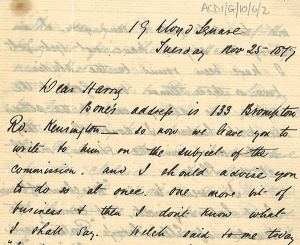 ACDI/G/10/6/2
19 Lloyd Square
Tuesday Nov 25 - 1879
Dear Harry
Bone's address is 133 Brompton
Ro. Kensington — so now we leave you to
write to him on the subject of the
commission. and I should advise you
to do so at once. one more bit of
business & then I don't know what
I shall say. Welch said to me today